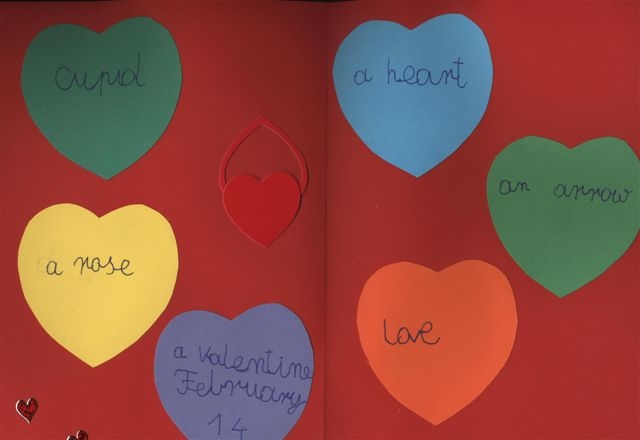 cupid
a rose
a valentine
February
14
a heart
an arrow
love